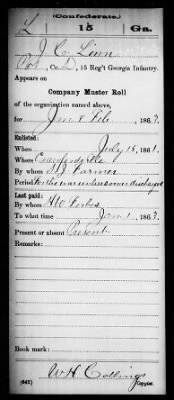 (Confederate.)
L 15 Ga.
J C Linn
Co. D, 15 Reg't Georgia Infantry.
Appears on
Company Muster Roll
of the organization named above,
for Jan & Feb, 1863.
Enlisted:
When July 15, 1861.
Where Crawfordville
By whom Farmer
Period For the war unless sooner discharged
Last paid:
By whom Forbes
To what time Jan 1, 1863.
Present or absent Present
Remarks:
Book mark:
(642) W H Collins
Copyist.